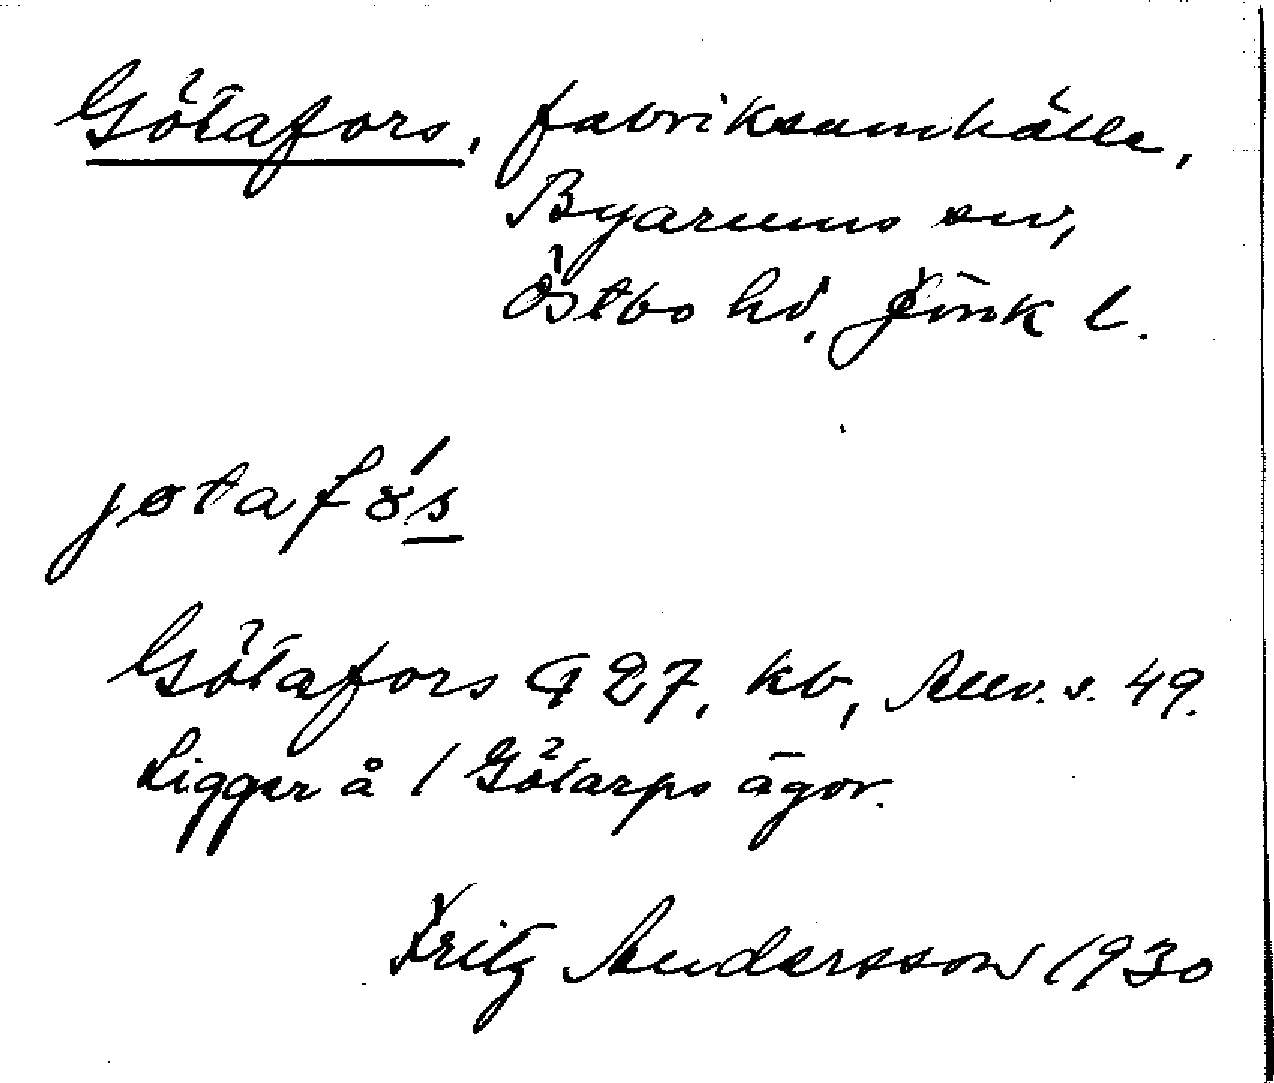 Götafors, fabrikssamhälle,
Byarums sn,
Östbo hd, Jönk l.
jøtafɷ́s
Götafors G 27, kb,                 s. 49.
Ligger å 1 Götarps ägor.
Fritz Andersson 1930